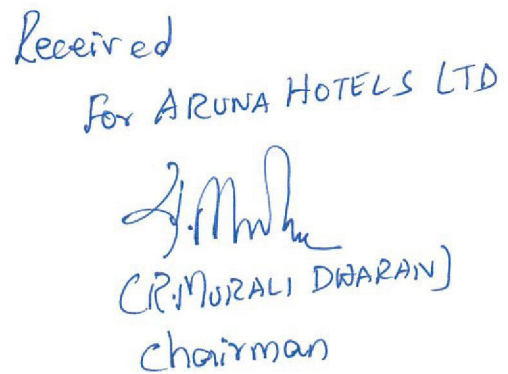 Received
For ARUNA HOTELS LTD
(R.MURALI DHARAN)
Chairman